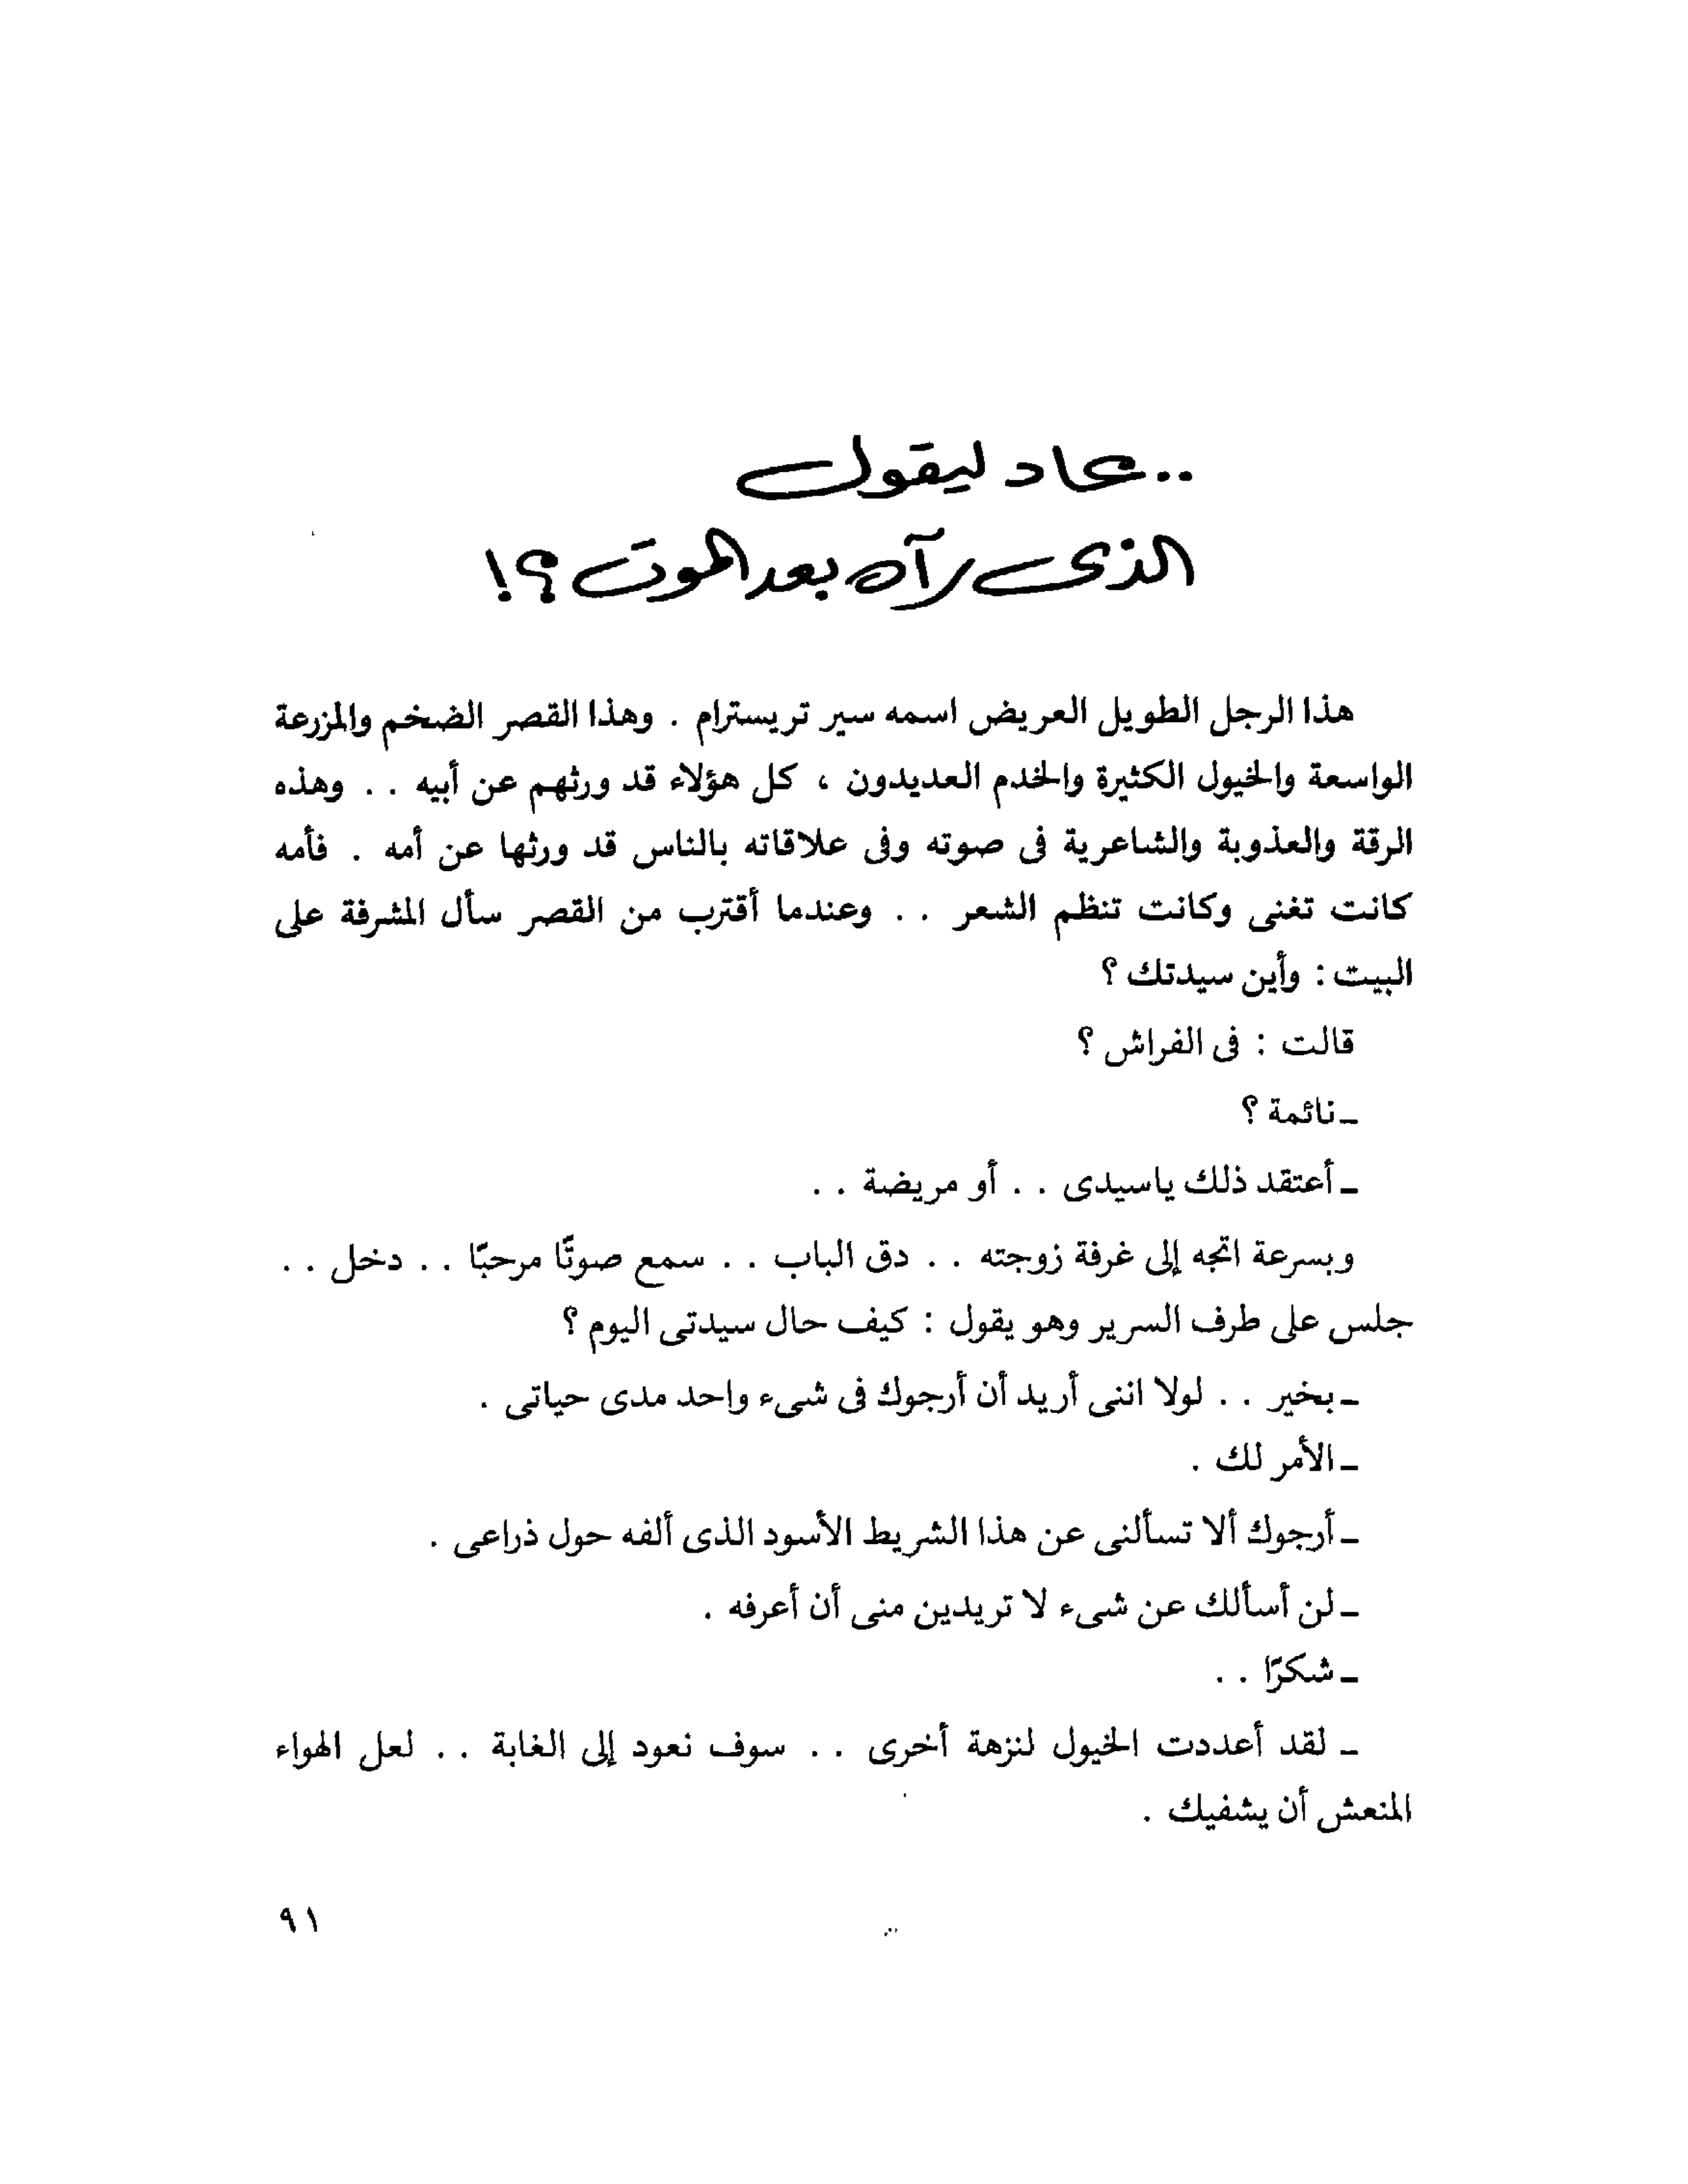 ..عاد ليقول
الذى رآه بعد الموت ؟!
هذا الرجل الطويل العريض اسمه سير تريسترام . وهذا القصر الضخم والمزرعة
الواسعة والخيول الكثيرة والخدم العديدون ، كل هؤلاء قد ورثهم عن أبيه . . وهذه
الرقة والعذوبة والشاعرية فى صوته وفى علاقاته بالناس قد ورثها عن أمه . فأمه
كانت تغنى وكانت تنظم الشعر . . وعندما أقترب من القصر سأل المشرفة على
البيت : وأين سيدتك ؟
قالت : فى الفراش ؟
ـ نائمة ؟
ـ أعتقد ذلك ياسيدى . . أو مريضة . .
وبسرعة اتجه إلى غرفة زوجته . . دق الباب . . سمع صوتًا مرحبًا . . دخل . .
جلس على طرف السرير وهو يقول : كيف حال سيدتى اليوم ؟
ـ بخير . . لولا اننى أريد أن أرجوك فى شىء واحد مدى حياتى .
ـ الأمر لك .
ـ أرجوك ألا تسألنى عن هذا الشريط الأسود الذى ألفه حول ذراعى .
ـ لن أسألك عن شىء لا تريدين منى أن أعرفه .
ـ شكرًا . .
ـ لقد أعددت الخيول لنزهة أخرى . . سوف نعود إلى الغابة . . لعل الهواء
المنعش أن يشفيك .
٩١